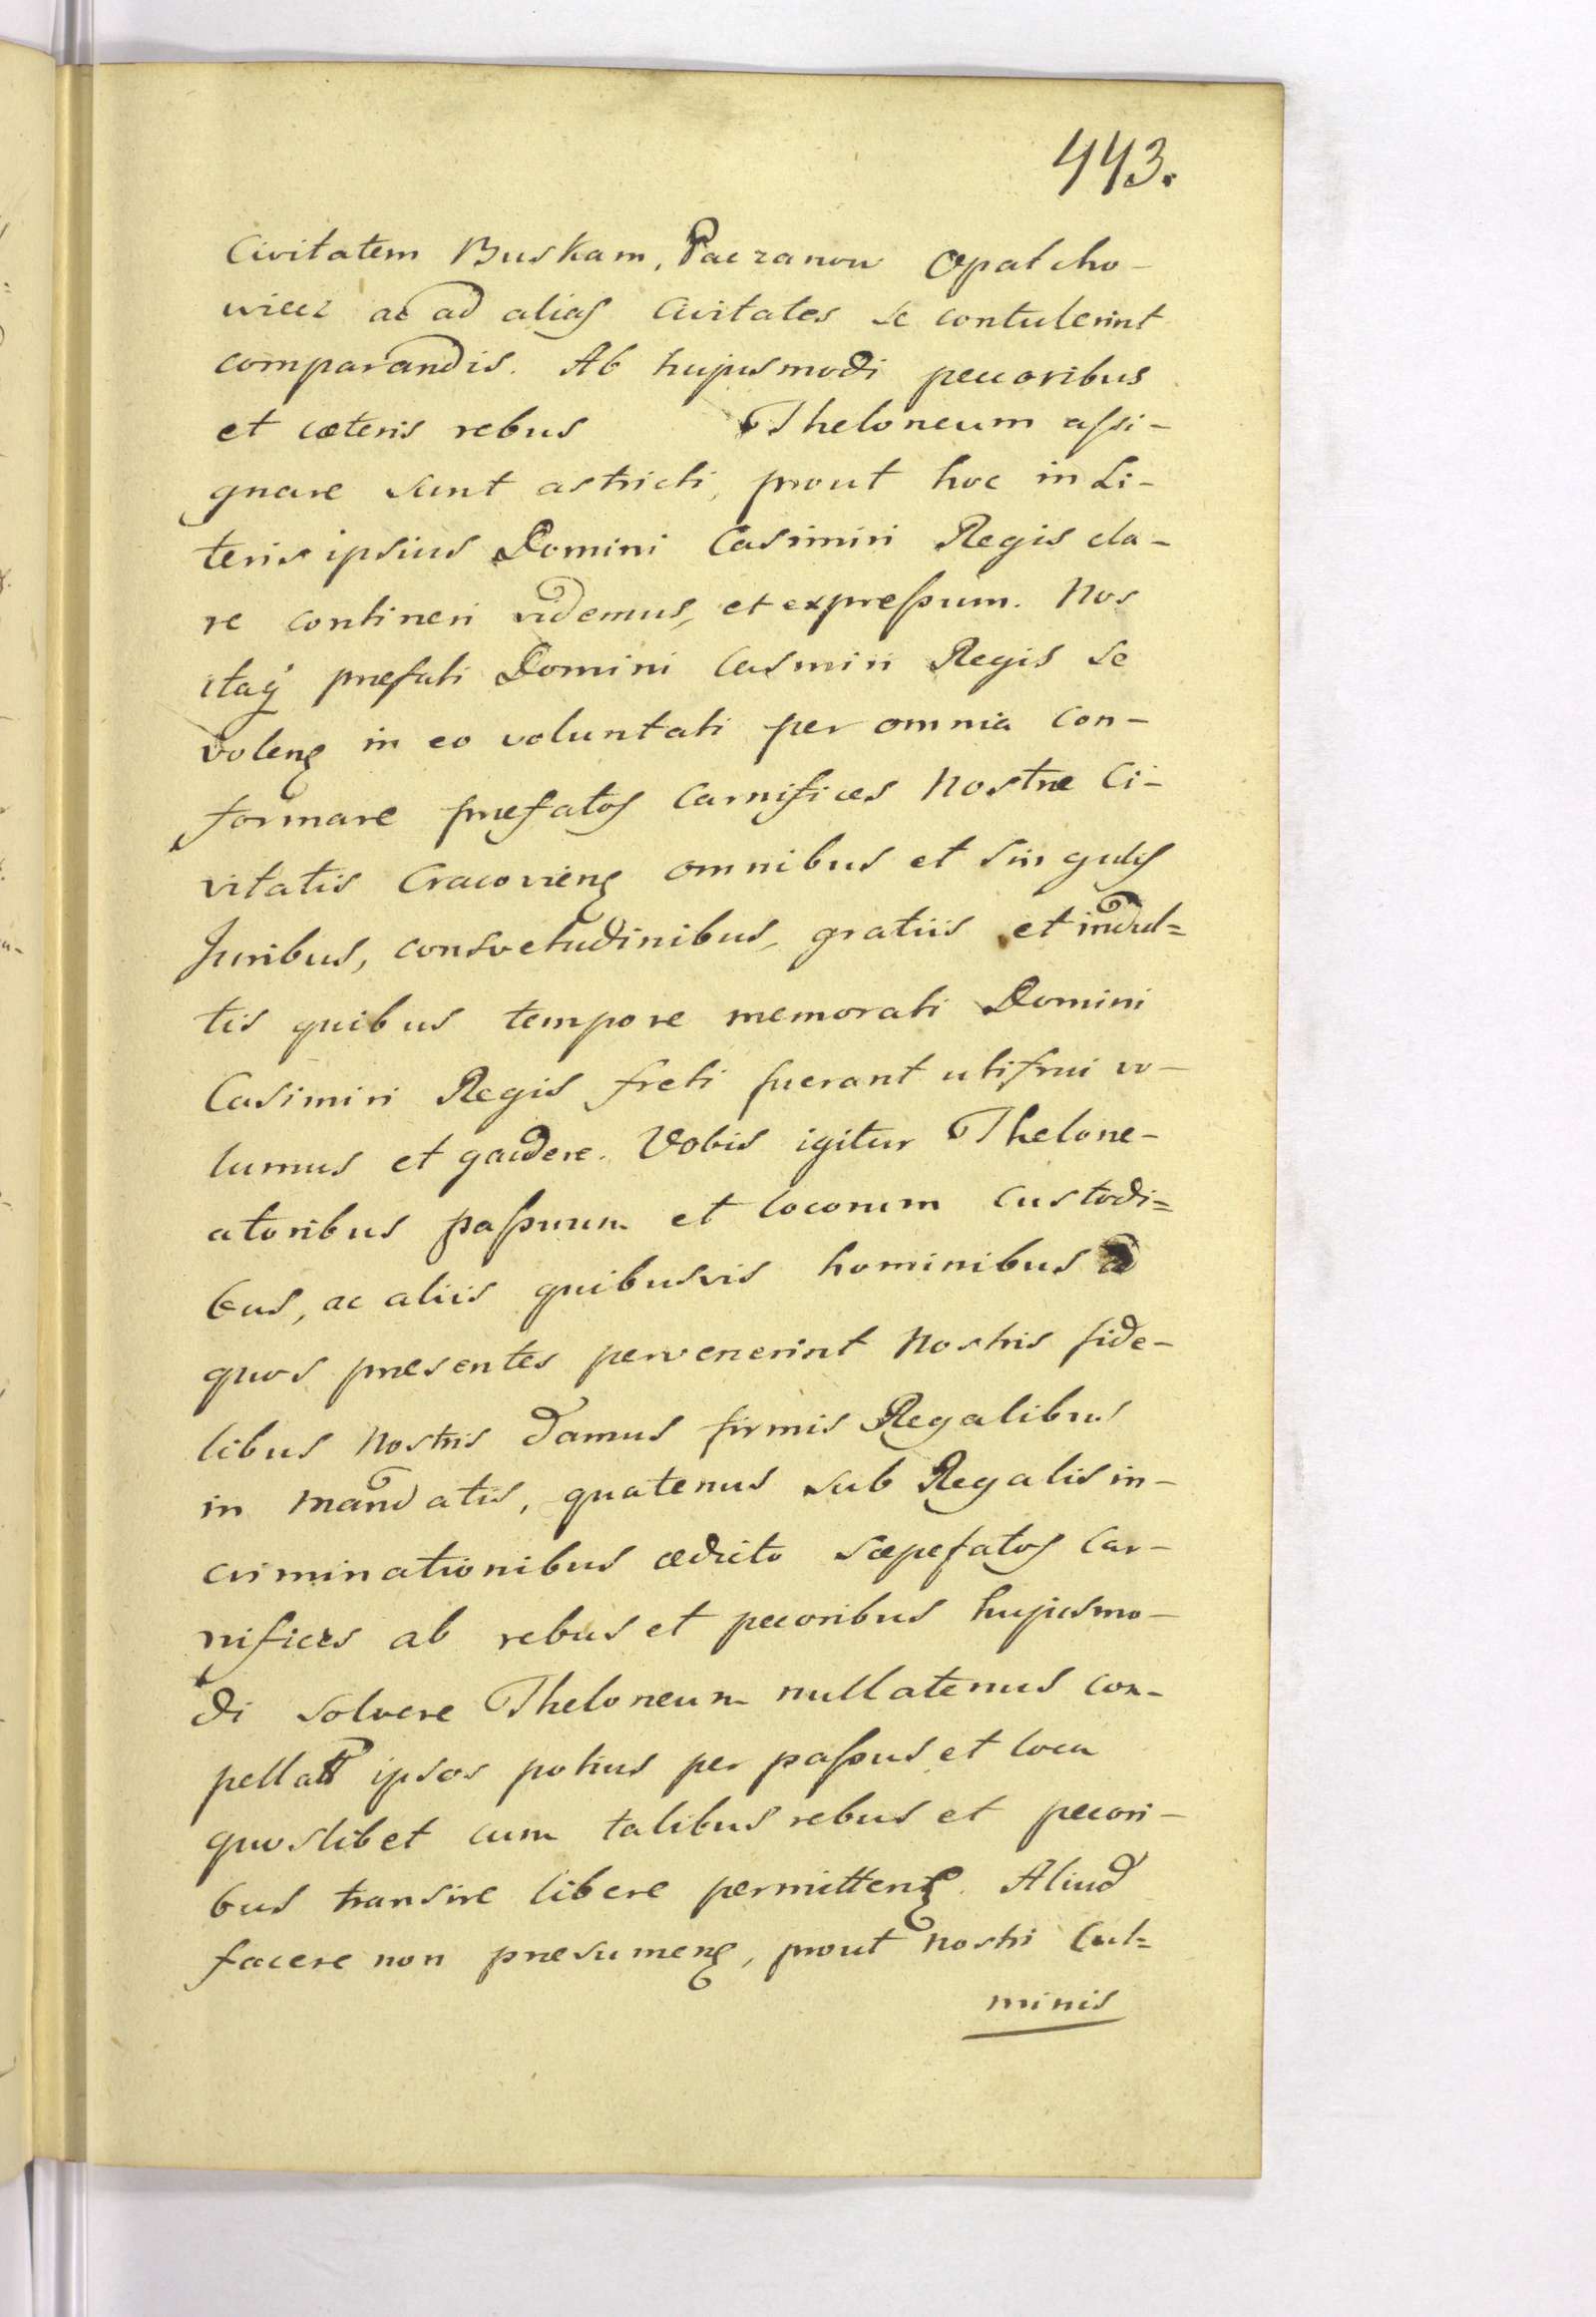 443.
Civitatem Buskam, Paczanow Opatcho-
wiecz ac ad alias Civitates se contulerint
comparandis. Ab hujusmodi peccoribus
et cæteris rebus Theloneum aſsi-
gnare sunt astricti, prout hoc in Li-
teris ipsius Domini Casimiri Regis cla-
re contineri videmus, et expreſsum. Nos
itaq præfati Domini Casmiri Regis se
volens in eo voluntati per omnia con-
formare præfatos Carnifices Nostræ Ci-
vitatis Cracoviens omnibus et singulis
Juribus, consvetudinibus, gratiis et indul=
tis quibus tempore memorati Domini
Casimiri Regis freti fuerant utifrui vo-
lumus et gaudere. Vobis igitur Thelone-
atoribus paſsuum et locorum Custodi=
bus, ac aliis quibusvis hominibus ad
quos præsentes pervenerint Nostris fide-
libus Nostris damus firmis Regalibus
in mandatis, quatenus sub Regalis in-
criminationibus ædicto sæpefatos Car-
nifices ab rebus et pecoribus hujusmo-
di solvere Theloneum nullatenus com-
pellatt ipsos potius per paſsus et loca
quoslibet cum talibus rebus et pecori-
bus transire libere permittens. Aliud
facere non præsumens, prout nostri Cul=
minis